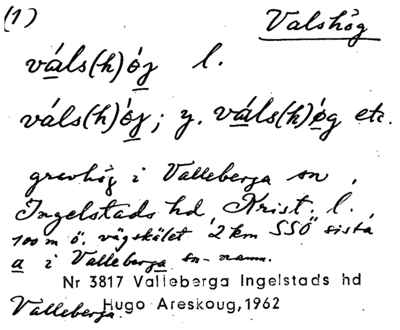 (1) Valshög
váls(h)ój l.
váls(h)ój; y. váls(h)óg etc.
gravhög i Valleberga sn,
Ingelstads hd, Krist. l.,
100 m ö. vägskälet 2 km SSÖ sista
a i Valleberga sn-namn.
Nr 3817 Valleberga Ingelstads hd
Valleberga. Hugo Areskoug,1962